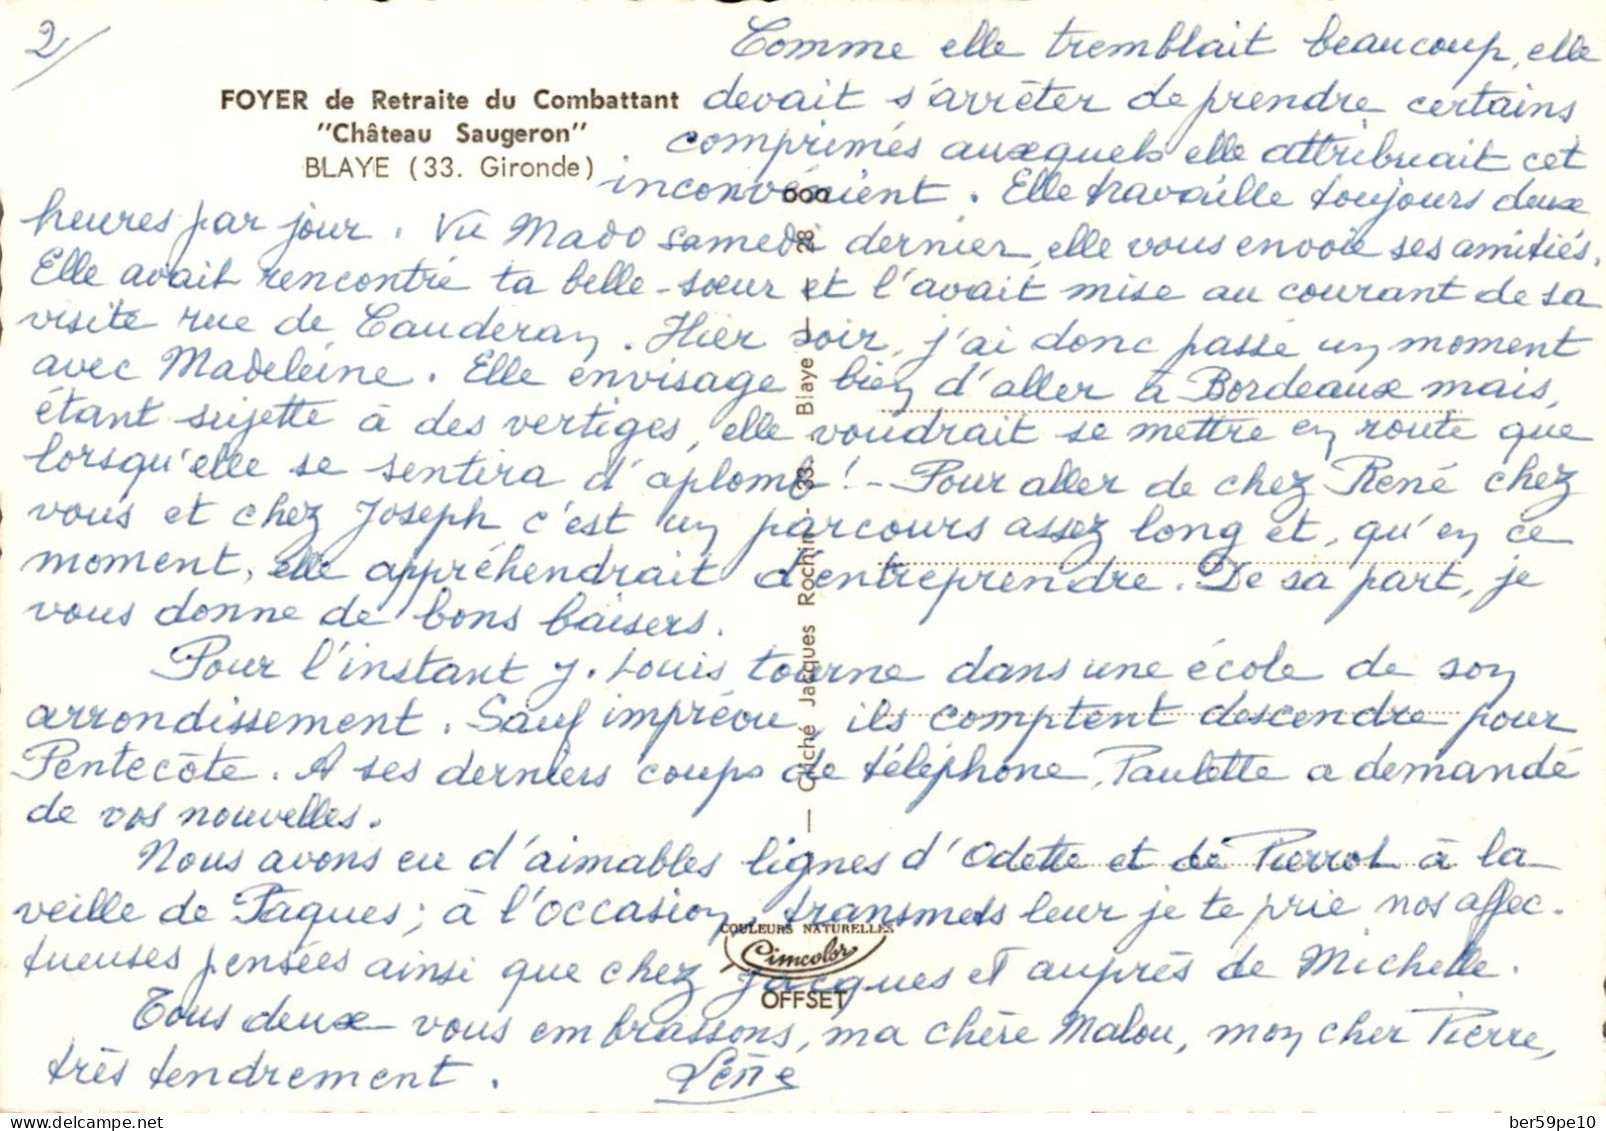 2/
FOYER de Retraite du Combattant
"Château Saugeron"
BLAYE (33. Gironde)
Comme elle tremblait beaucoup, elle
devait s'arrêter de prendre certains
comprimés auxquels elle attribuait cet
inconvénient. Elle travaille toujours deux
heures par jour. Vu Mado samedi dernier, elle vous envoie ses amitiés.
Elle avait rencontré ta belle-sœur et l'avait mise au courant de sa
visite rue de Caudéran. Hier soir, j'ai donc passé un moment
avec Madeleine. Elle envisage bien d'aller à Bordeaux mais,
étant sujette à des vertiges, elle voudrait se mettre en route que
lorsqu'elle se sentira d'aplomb! - Pour aller de chez René chez
vous et chez Joseph, c'est un parcours assez long et, qu'en ce
moment, elle appréhendrait d'entreprendre. De sa part, je
vous donne de bons baisers.
Pour l'instant J. Louis tourne dans une école de son
arrondissement. Sauf imprévu, ils comptent descendre pour
Pentecôte. A ses derniers coups de téléphone, Paulette a demandé
de vos nouvelles.
Nous avons eu d'aimables lignes d'Odette et de Pierrot à la
veille de Pâques; à l'occasion, transmets leur je te prie nos affec-
tueuses pensées ainsi que chez Jacques et auprès de Michelle.
Tous deux vous embrassons, ma chère Malou, mon cher Pierre,
très tendrement. Lène
600
— Cliché Jacques Rochin - 33. Blaye — 28
COULEURS NATURELLES
Cimcolor
OFFSET
ber59pe10